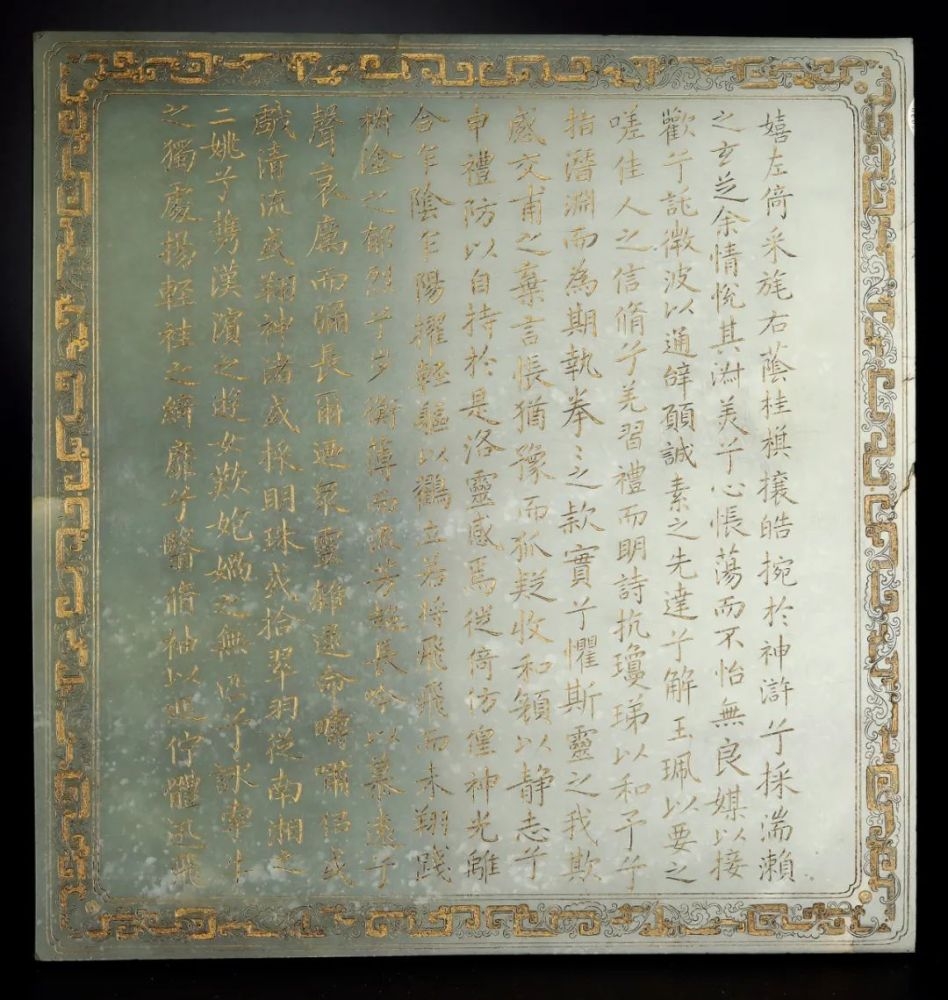 嬉左倚采旄右蔭桂棋攘皓捥於神滸兮採湍瀨
之玄芝余情悅其淑美兮心悵蕩而不怡無良媒以接
歡兮託微波以通辭願誠素之先達兮解玉珮以要之
嗟佳人之信脩兮羌習禮而明詩抗瓊珶以和予兮
指潛淵而為期執拳〻之款實兮懼斯靈之我欺
感交甫之棄言悵猶豫而狐疑收和顏以静志兮
申禮防以自持於是洛靈感焉徙倚仿偟神光離
合乍陰乍陽擢輕軀以鶴立若将飛飛而未翔踐
椒塗之郁烈兮步衡薄而流芳超長吟以慕遠兮
聲哀厲而彌長爾迺衆靈雜遝命疇嘯侶或
戲清流或翔神渚或採明珠或拾翠羽從南湘之
二姚兮携漢濱之遊女歎匏媧之無匹兮詠牽牛
之獨處揚輕袿之綺靡兮翳脩袖以延佇體迅飛